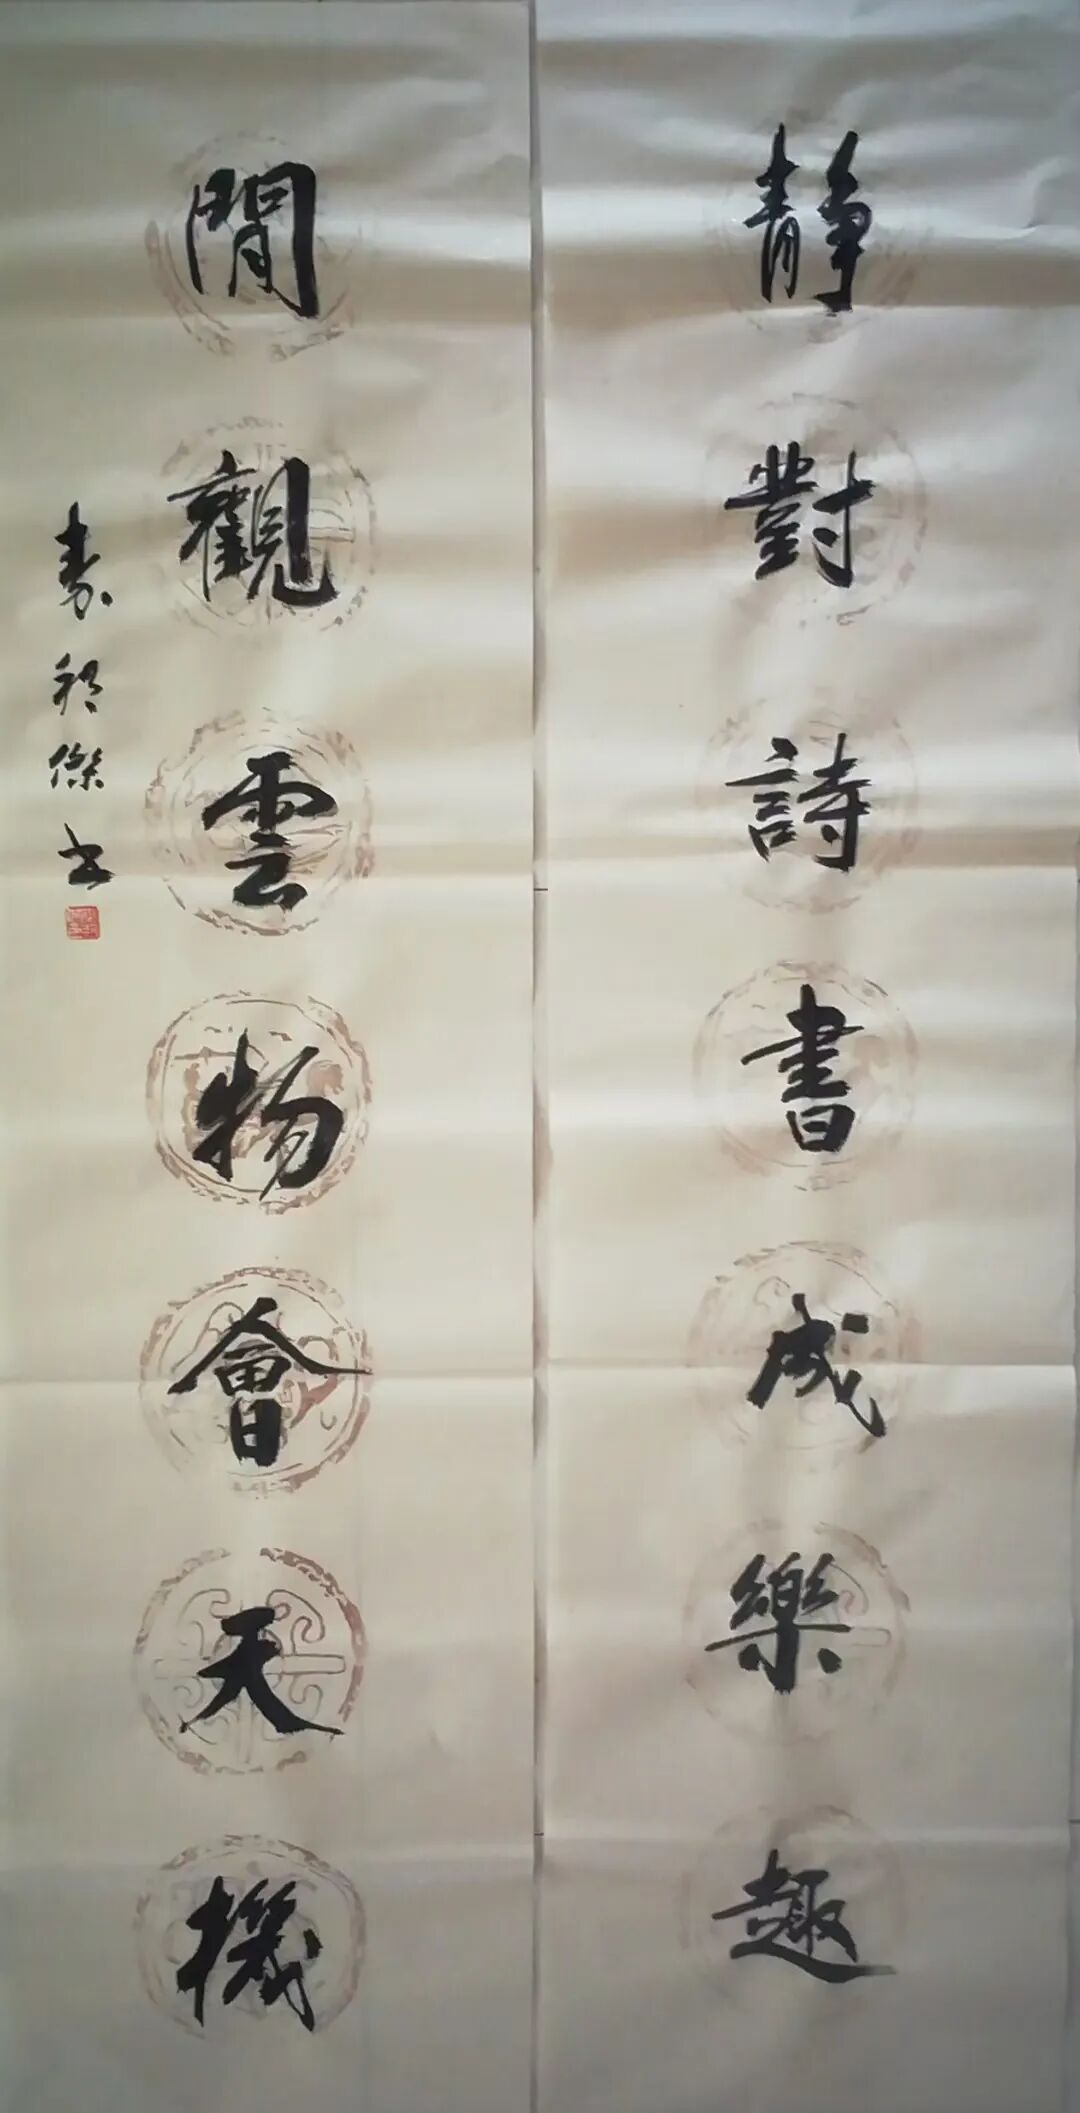 靜對詩書成樂趣
閒觀雲物會天機
袁初傑书